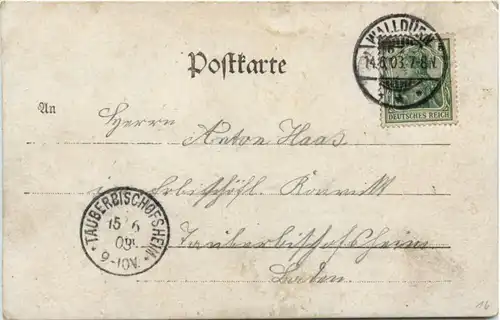 WALLDÜRN
14.6.03.7-8.V.
Postkarte
DEUTSCHES REICH
An
Herrn
Anton Haas
Erzbischöfl. Konvikt
TAUBERBISCHOFSHEIM
15 6
03
9-10V.
Tauberbischofsheim
Baden
16